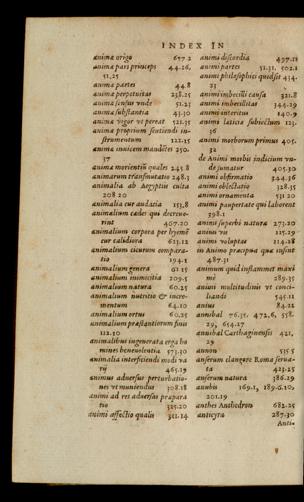 INDEX IN
animæ origo 677.2
animæ pars princeps 44.26.
51.25
animæ partes 44.8
animæ perpetuitas 238.25
animæ sensus vnde 51.25
animæ substantia 43.30
animæ vigor vt pereat 521.35
animæ proprium sentiendi in-
strumentum 122.15
animæ inuicem mandãtes 250.
37
animæ morientiũ quales 245.8
animarum transmutatio 248.3
animalia ab Aegyptiis culta
208.20
animalia cur audacia 153.8
animalium cædes qui decreue-
rint 407.20
animalium corpora per hyemẽ
cur calidiora 623.12
animalium cicurum compara-
tio 194.1
animalium genera 61.15
animalium inimicitia 209.5
animalium natura 60.25
animalium nutritio & incre-
mentum 64.10
animalium ortus 60.25
animalium præstantiorum finis
112.30
animalibus ingenerata erga ho
mines beneuolentia 573.30
animalia interficiendi modi va
rij 465.19
animus aduersus perturbatio-
nes vt muniendus 308.18
animi ad res aduersas præpara
tio 325.20
animi affectio qualis 311.14
animi discordia 497.11
animi partes 51.31. 502.1
animi philosophici quid sit 434.
23
animi imbecilli causa 321.8
animi imbecillitas 344.29
animi interitus 140.9
animi latitia subiectum 123.
36
animi morborum primus 405.
32
de Animi morbis iudicium vn-
de sumatur 405.30
animi obfirmatio 544.36
animi oblectatio 328.35
animi ornamenta 531.20
animi paupertate qui laborent
598.1
animi superbi natura 273.20
animi vis 115.29
animi voluptas 114.28
in Animo præcipua quæ insunt
487.31
animum quid inflammet maxi
mè 289.35
animi multitudinis vt conci-
liandi 545.11
anius 84.22
annibal 76.35. 472.6. 558.
29. 654.27
annibal Carthaginensis 421.
29
annon 535.5
anserum clangore Roma serua-
ta 423.25
anserum natura 386.29
anubis 169.1. 189.6.10.
201.19
anthes Anthedron 682.25
anticyra 287.30
Anti-